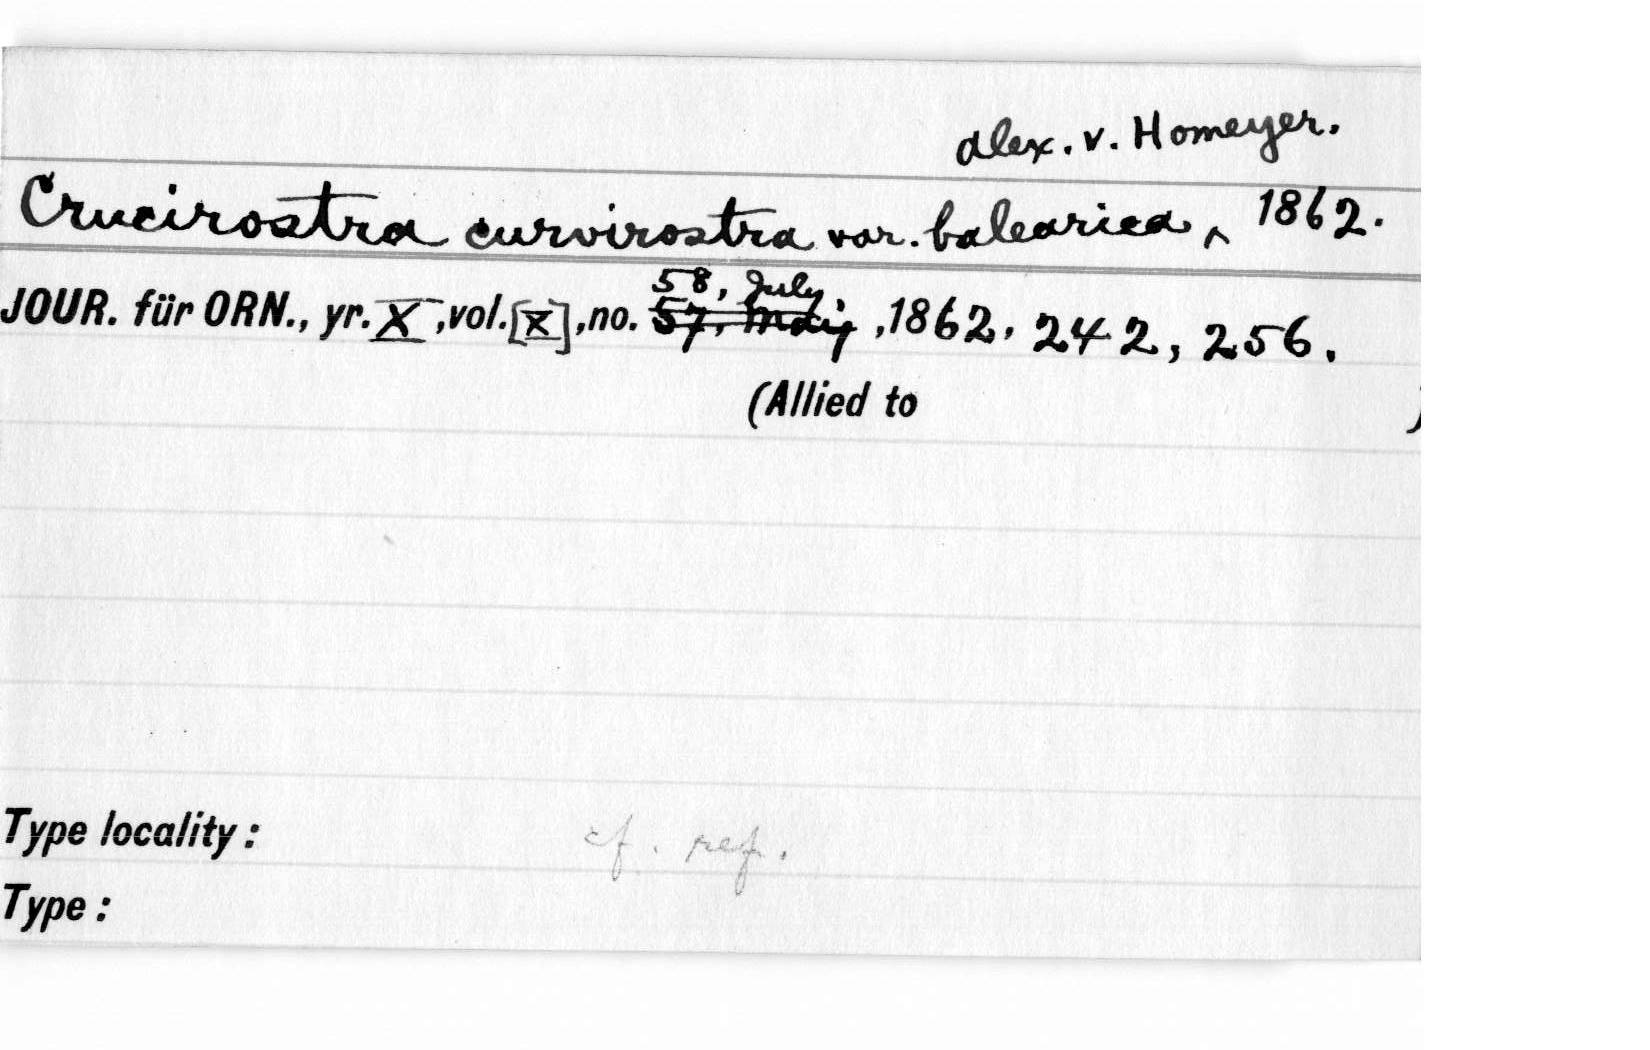 alex. v. Homeyer.
Crucirostra curvirostra var. balearica ^ 1862.
58, July,
JOUR. für ORN., yr. X, vol. [X], no. 57, May, 1862, 242, 256.
(Allied to )
Type locality: cf. ref.
Type: